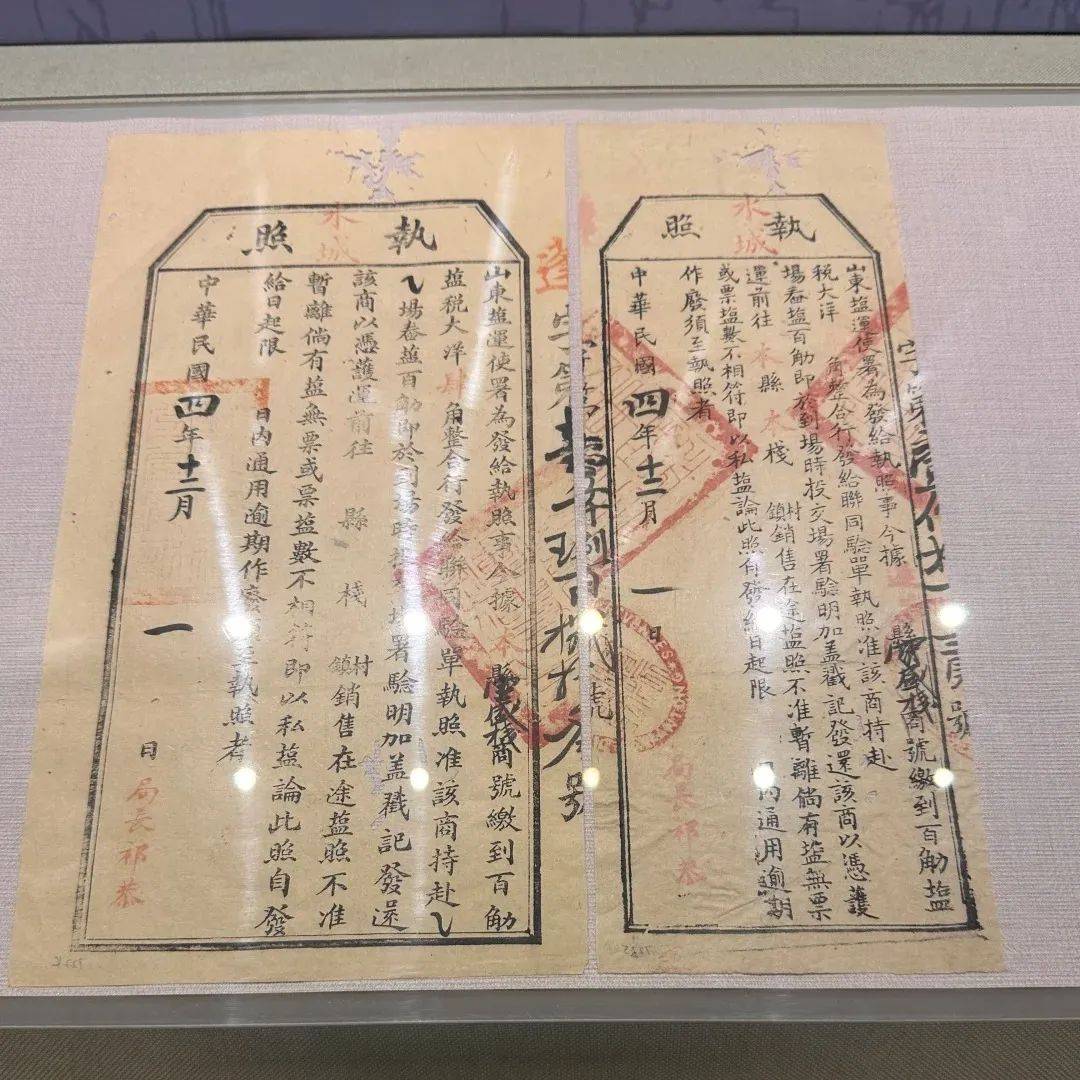 執照
水城
山東盐運使署為發給執照事今據本縣盛棧商號繳到百觔
盐税大洋肆角整合行發給聯司驗單執照准該商持赴
場春盐百觔即於到場時投場署驗明加盖戳記發還
該商以憑護運前往 縣 棧 村鎮銷售在途盐照不准
暫離倘有盐無票或票盐數不相符即以私盐論此照自發
給日起限 日内通用逾期作廢至執照者
中華民國四年十二月 一 日
局長祁恭
蓬字第 号
執照
水城
山東盐運使署為發給執照事今據 縣盛棧商號繳到百觔盐
税大洋 角整合行發給聯同驗單執照准該商持赴
場春盐百觔即於到場時投交場署驗明加盖戳記發還該商以憑護
運前往本縣本棧 村鎮銷售在途盐照不准暫離倘有盐無票
或票盐數不相符即以私盐論此照自發給日起限 日内通用逾期
作廢須至執照者
中華民國四年十二月 一 日
局長祁恭